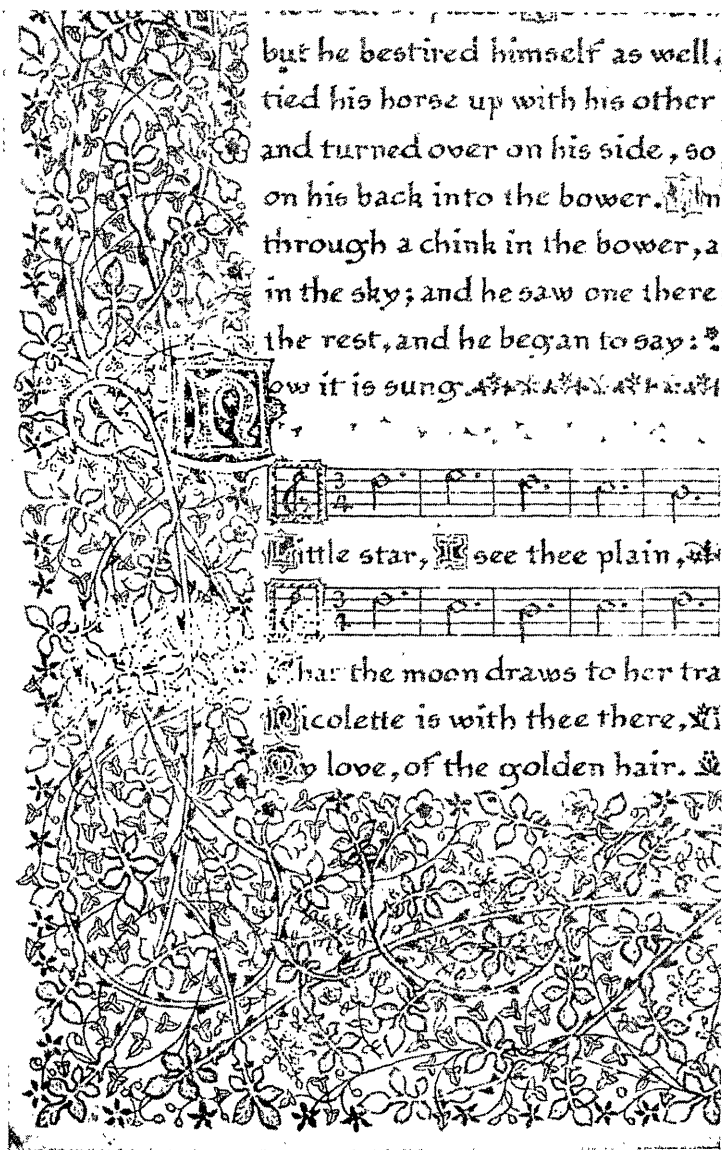 but he bestired himself as well,
tied his horse up with his other
and turned over on his side, so
on his back into the bower. In
through a chink in the bower, a
in the sky; and he saw one there
the rest, and he began to say:
Now it is sung.
Little star, I see thee plain,
That the moon draws to her tra
Nicolette is with thee there,
My love, of the golden hair.